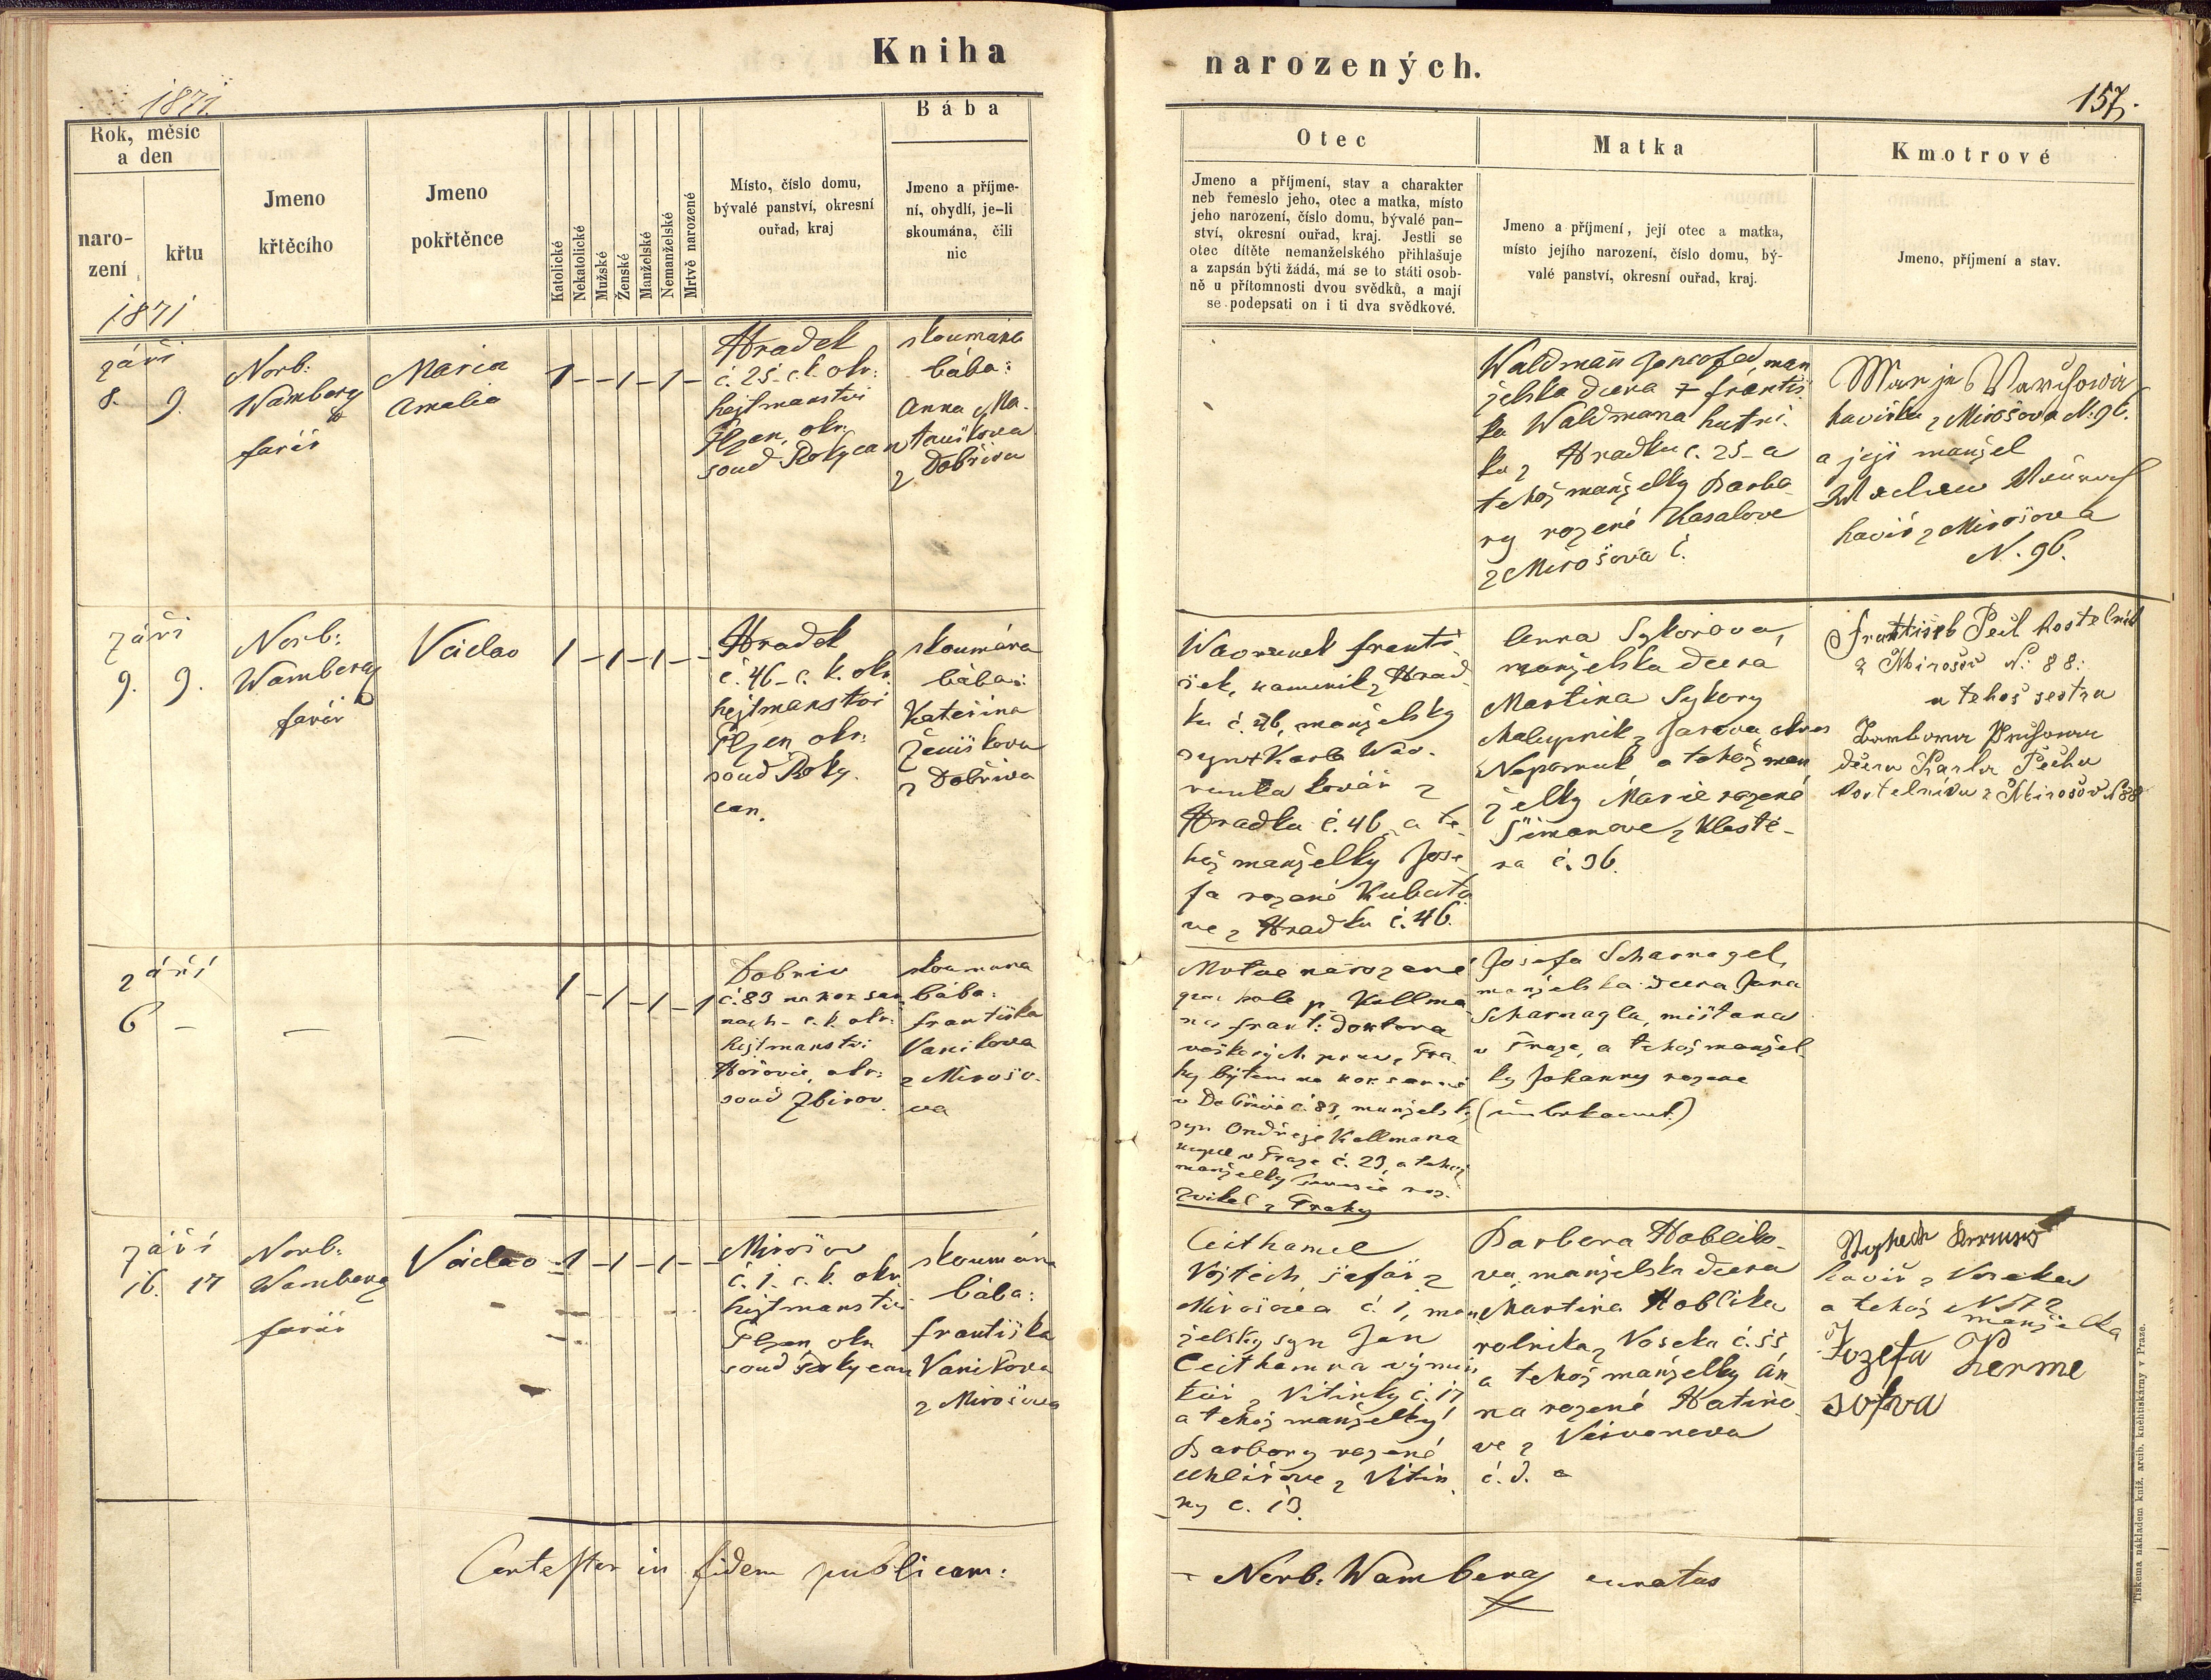 Kniha
1871.
Rok, měsíc
a den
naro-
zení
křtu
1871
Jmeno
křtěcího
Jmeno
pokřtěnce
Katolické
Nekatolické
Mužské
Ženské
Manželské
Nemanželské
Mrtvě narozené
Místo, číslo domu,
bývalé panství, okresní
ouřad, kraj
Bába
Jmeno a příjme-
ní, obydlí, je-li
skoumána, čili
nic
září
8. 9.
Norb:
Wamberg
farář
Maria
Amalia
1 - - 1 - 1 -
Hradek
č. 25 - c. k. okr:
hejtmanství
Plzen, okr.
soud Rokycan
skoumána
bába:
Anna Ma-
touškova
z Dobřiva
září
9. 9.
Norb:
Wamberg
farář
Václav
1 - 1 - 1 - -
Hradek
č. 46 - c. k. okr.
hejtmanství
Plzen, okr:
soud Roky-
can.
skoumána
bába:
Kateřina
Ženíškova
z Dobřiva
září
6 -
-
-
1 - 1 - 1 - 1
Dobřiv
č. 83
c. k. okr:
hejtmanství
Hořovic, okr:
soud Zbirov
skoumana
bába:
františka
Vaníkova
z Mirošo-
va
září
16. 17
Norb:
Wamberg
farář
Václav
1 - 1 - 1 - -
Mirošov
č. 1. c. k. okr
hejtmanství
Plzen okr
soud Rokycan
skoumána
bába:
františka
Vaníkova
z Mirošova
Contestor in fidem publicam:
narozených.
157.
Otec
Jmeno a příjmení, stav a charakter
neb řemeslo jeho, otec a matka, místo
jeho narození, číslo domu, bývalé pan-
ství, okresní ouřad, kraj. Jestli se
otec dítěte nemanželského přihlašuje
a zapsán býti žádá, má se to státi osob-
ně u přítomnosti dvou svědků, a mají
se podepsati on i ti dva svědkové.
Matka
Jmeno a příjmení, její otec a matka,
místo jejího narození, číslo domu, bý-
valé panství, okresní ouřad, kraj.
Kmotrové
Jmeno, příjmení a stav.
Waldmann Josefa, man
želska dcera † franti
ka Waldmana hutni-
ka z Hradku č. 25 - a
tehož manželky Barba-
ry rozené Kasalove
z Mirošova č.
havířka z Mirošova N. 96.
a její manžel
havíř z Mirošova
N. 96.
Wavrunek franti-
šek, kamenik z Hrad-
ku č. 46, manželsky
syn † Karla Wav-
runka kovář z
Hradku č. 46, a te-
hož manželky Jose-
fa rozené Kubato
ve z Hradku č. 46.
Anna Sykorova,
manželska dcera
Martina Sykory
Nepomuk a tehož man
želky Marie rozené
Šimanove z Klašte-
ra č. 36.
František Pech kostelník
z Mirošov N: 88:
a tehož sestra
dcera Karla Pecha
kostelníka z Mirošov N 88
Mrtve narozené
frant: Doktora
v Dobřívě č. 83, manželsky
syn Ondřeje Kallmana
v Praze č. 29, a tehož
manželky
z Prahy
Josefa Scharnagel,
manželska dcera Jana
Scharnagla, mištana
v Praze, a tehož manžel-
ky Johanny rozene
(unbekannt.)
Ceithamel
Vojtěch šafář z
Mirošova č. 1, man
želsky syn Jan
Ceithamra výmin
kář z Vitinky č. 17
a tehož manželky
Barbory rozené
Uhlířove z Vitin
ky č. 13.
Barbora Hobliko-
va manželska dcera
Martina Hoblika
rolnika z Voseka č. 55
a tehož manželky An-
na rozené
ve z
č. 3.
havíř z Voseka
a tehož N 172
manželka
Jozefa Kerme
sova
- Norb: Wamberg curatus
Tiskema nákladem kníž. arcib. kněhtiskárny v Praze.